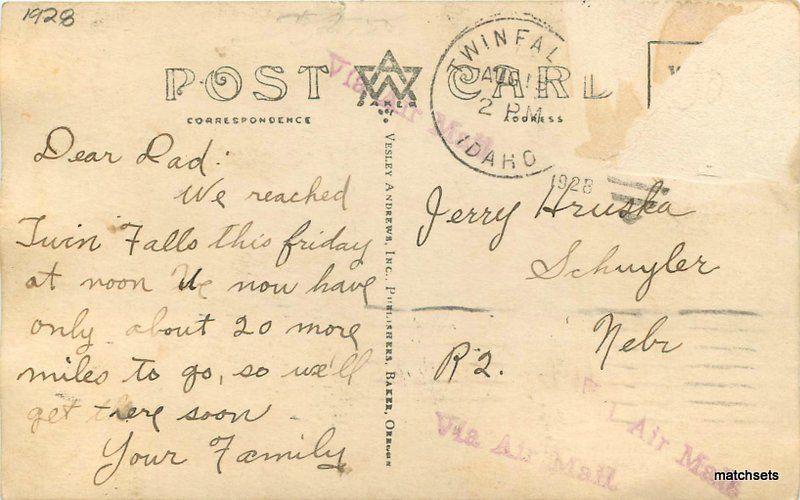 1928
POST CARD
CORRESPONDENCE
ADDRESS
BAKER
TWIN FAL
AUG
2 PM
IDAHO
1928
Via Air Mail
Dear Dad:
We reached
Twin Falls this friday
at noon We now have
only about 20 more
miles to go, so we'll
get there soon
Your Family
VESLEY ANDREWS, INC., PUBLISHERS, BAKER, OREGON
Jerry Hruska
Schuyler
Nebr
R2.
Via Air Mail
Air Mail
matchsets